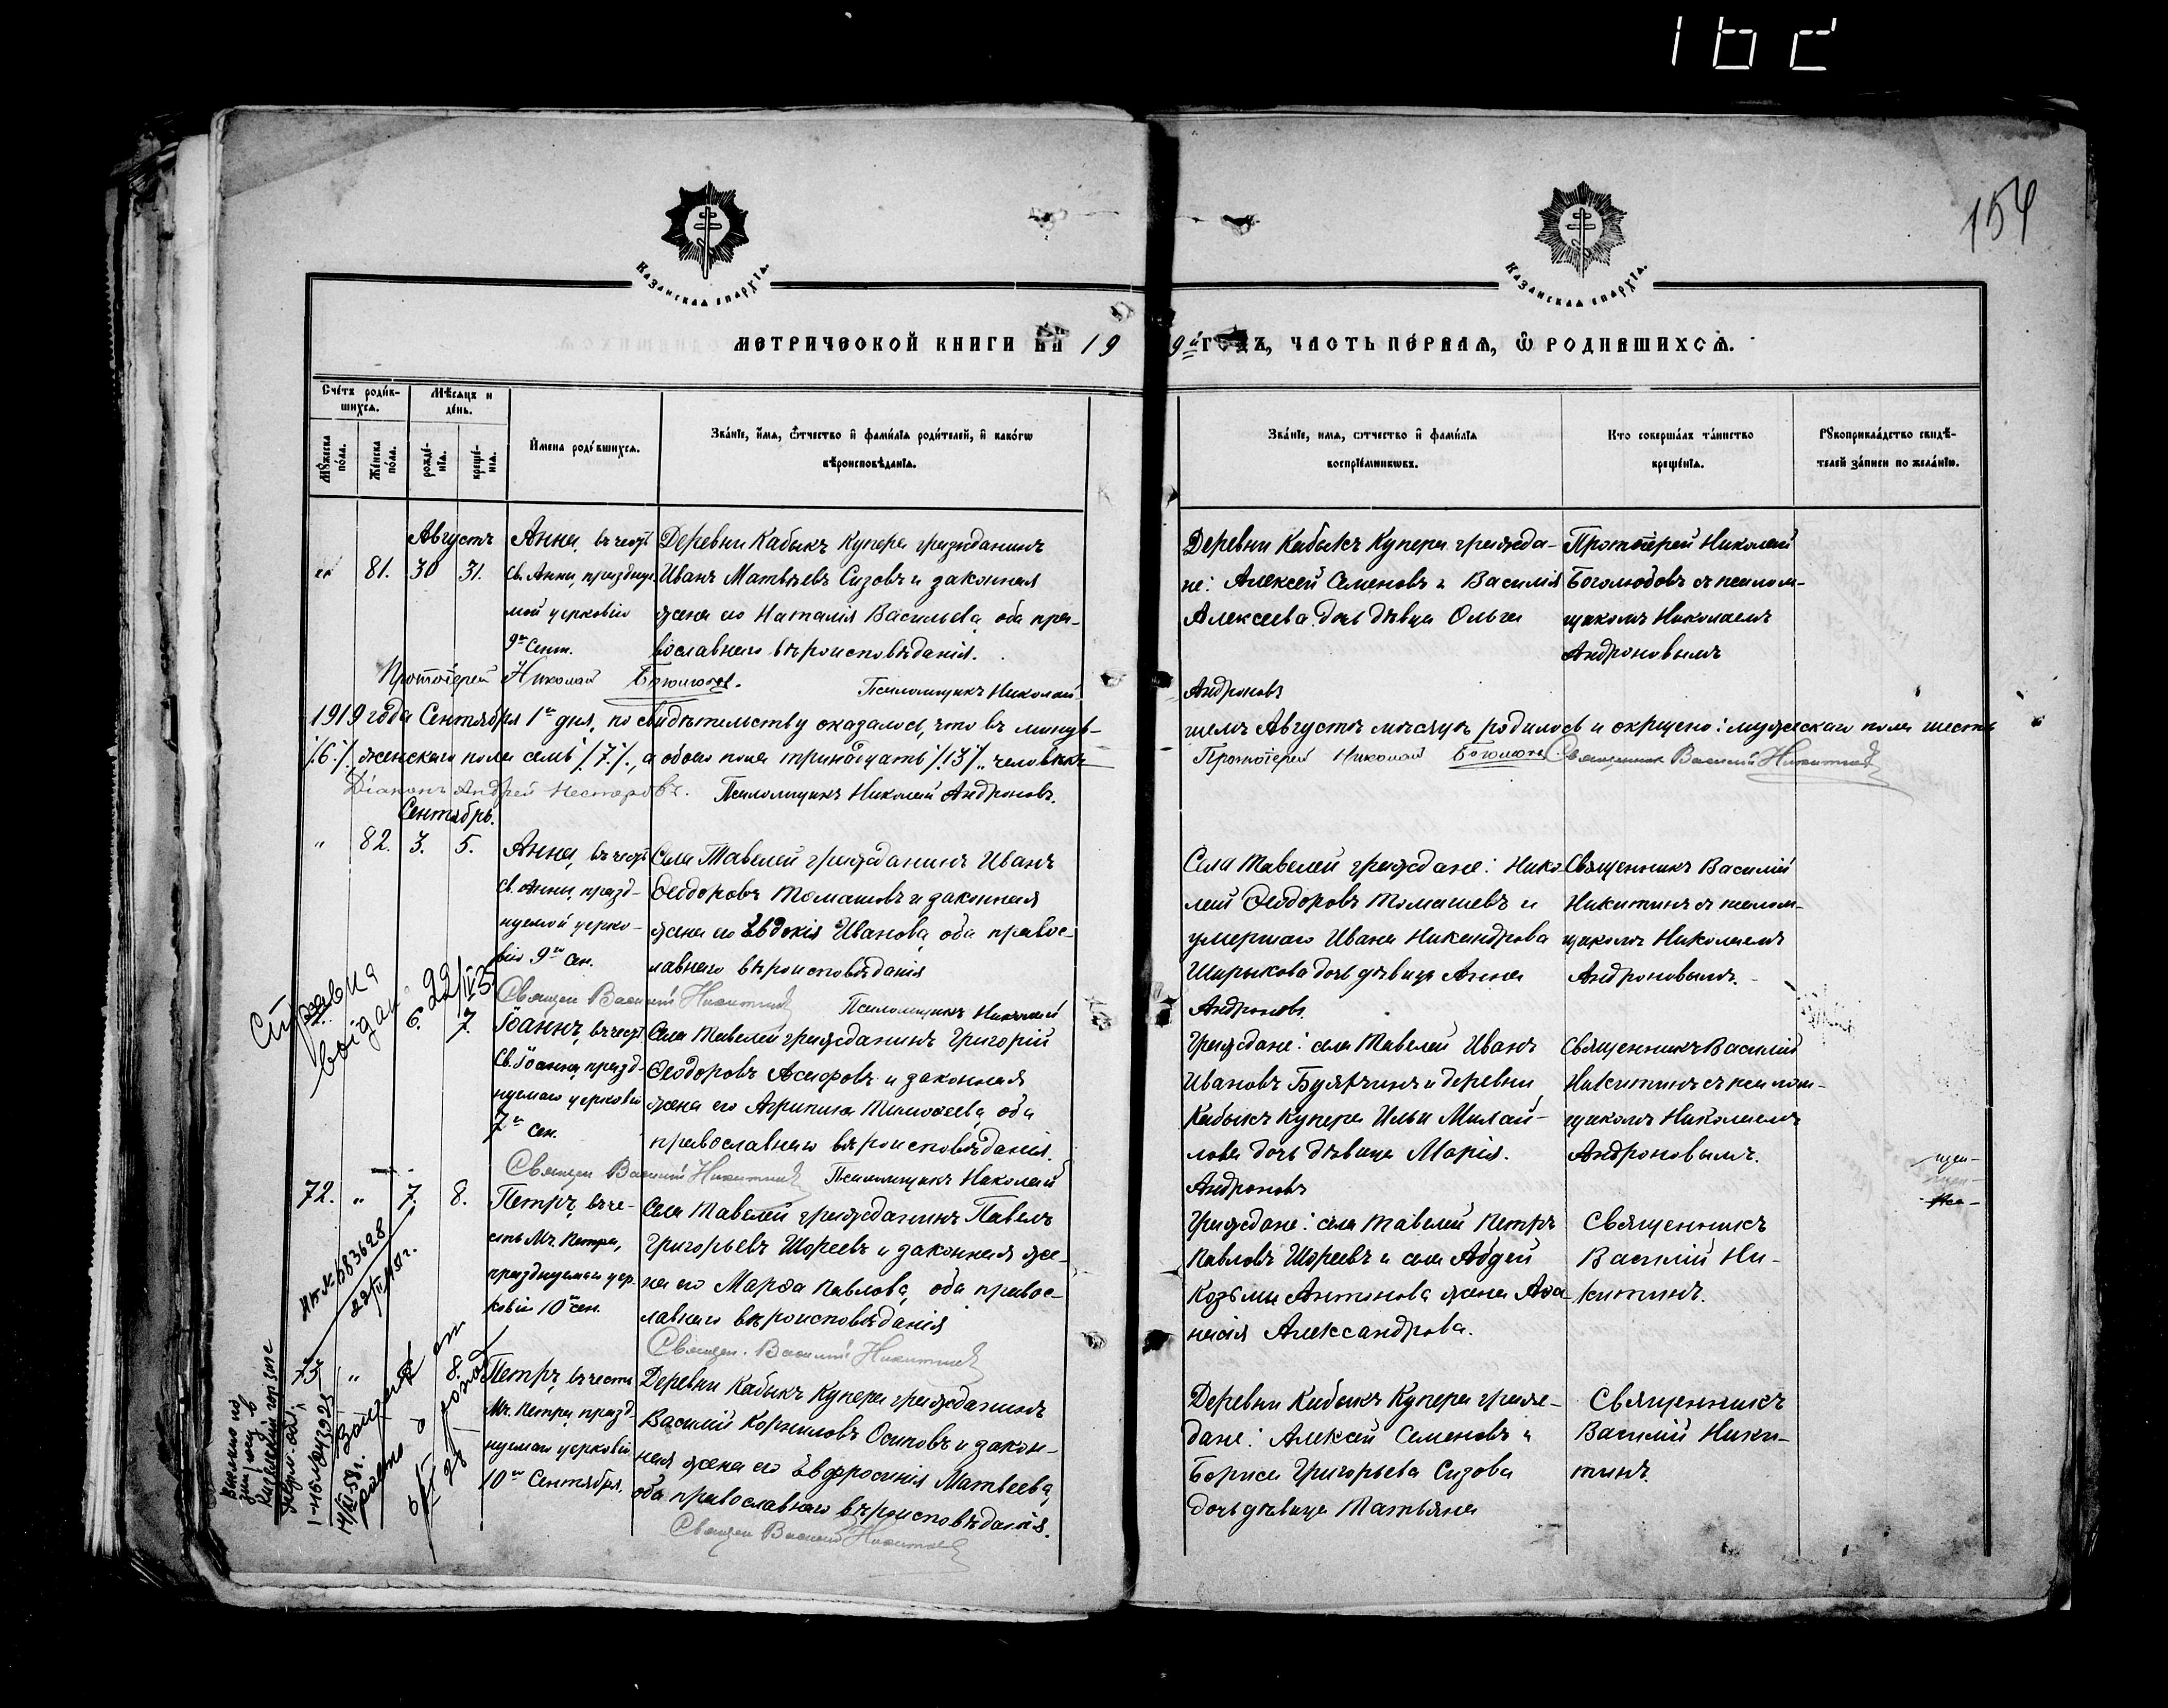 154
Казанская епархїа.
Казанская епархїа.
МЕТРИЧЕСКОЙ КНИГИ НА 19
9й ГОДЪ, ЧАСТЬ ПЕРВАЯ, Ѡ РОДИВШИХСЯ.
Счетъ родив-
шихся.
Мѣсяцъ и
день.
Мужеска
пола.
Женска
пола.
рожде-
нія.
креще-
нія.
Имена родившихся.
Званіе, имя, отчество и фамилія родителей, и какогѡ
вѣроисповѣданія.
Званіе, имя, отчество и фамилія
воспріемникѡвъ.
Кто совершалъ таинство
крещенія.
Рукоприкладство свидѣ-
телей записи по желанію.
Августъ
81. 30 31.
Анна, въ честь
Св. Анны, праздну-
мой церковію
9го Сент.
Деревни Кабыкъ Купера гражданинъ
Иванъ Матвѣевъ Сизовъ и законная
жена его Наталія Васильева, оба пра-
вославнаго вѣроисповѣданія.
Деревни Кабыкъ Купера гражда-
не: Алексей Семеновъ и Василія
Алексеева дочь дѣвица Ольга
Протоіерей Николай
Боголюбовъ съ псалом-
щикомъ Николаемъ
Андроновымъ
Протоіерей Николай Боголюбовъ. Псаломщикъ Николай
Андроновъ
1919 года Сентября 1го дня, по свидѣтельству оказалось, что въ минув-
шемъ Августѣ мѣсяцѣ родилось и окрещено: мужескаго пола шесть
/6./, женскаго пола семь /7./, а обоего пола тринадцать /13/ человѣкъ
Протоіерей Николай Боголюбовъ Священникъ Василій Никитинъ
Діаконъ Андрей Нестеровъ. Псаломщикъ Николай Андроновъ.
Сентябрь.
" 82. 3. 5.
Анна, въ честь
Св. Анны, празд-
нуемой церко-
вію 9го Сен.
Села Тавелей гражданинъ Иванъ
Ѳеодоровъ Томашевъ и законная
жена его Евдокія Иванова, оба правос-
лавнаго вѣроисповѣданія
Села Тавелей граждане: Нико-
лай Ѳеодоровъ Томашевъ и
умершаго Ивана Никандрова
Ширыкова дочь дѣвица Анна
Священникъ Василій
Никитинъ съ псалом-
щикомъ Николаемъ
Андроновымъ.
Священ. Василій Никитинъ Псаломщикъ Николай
Андроновъ.
Справка
выдан
22/IV
6. 7.
Іоаннъ, въ честь
Св. Іоанна, празд-
нуемаго церковію
7го Сен.
Села Тавелей гражданинъ Григорій
Ѳеодоровъ Асафовъ и законная
жена его Агрипина Тимоѳеева, оба
православнаго вѣроисповѣданія.
Граждане: села Тавелей Иванъ
Ивановъ и деревни
Кабыкъ Купера Ильи Михай-
лова дочь дѣвица Марія.
Священникъ Василій
Никитинъ съ псалом-
щикомъ Николаемъ
Андроновымъ.
Священ. Василій Никитинъ Псаломщикъ Николай
Андроновъ
72. " 7. 8.
Петръ, въ че-
сть Мч. Петра,
празднуемаго цер-
ковію 10го Сен.
Села Тавелей гражданинъ Павелъ
Григорьевъ Шореевъ и законная же-
на его Марѳа Павлова, оба правос-
лавнаго вѣроисповѣданія
Граждане: села Тавелей Петръ
Павловъ Шореевъ и села Абдей
Козьмы Антонова жена Аѳа-
насія Александрова.
Священникъ
Василій Ни-
китинъ.
Священ. Василій Никитинъ
73. " 8.
Петръ, въ честь
Мч. Петра, празд-
нуемаго церковію
10го Сентября.
Деревни Кабыкъ Купера гражданинъ
Василій Корниловъ Осиповъ и закон-
ная жена его Евфросинія Матвеева,
оба православнаго вѣроисповѣданія.
Деревни Кабыкъ Купера граж-
дане: Алексей Семеновъ и
Бориса Григорьева Сизова
дочь дѣвица Татьяна
Священникъ
Василій Ники-
тинъ.
Священ Василій Никитинъ